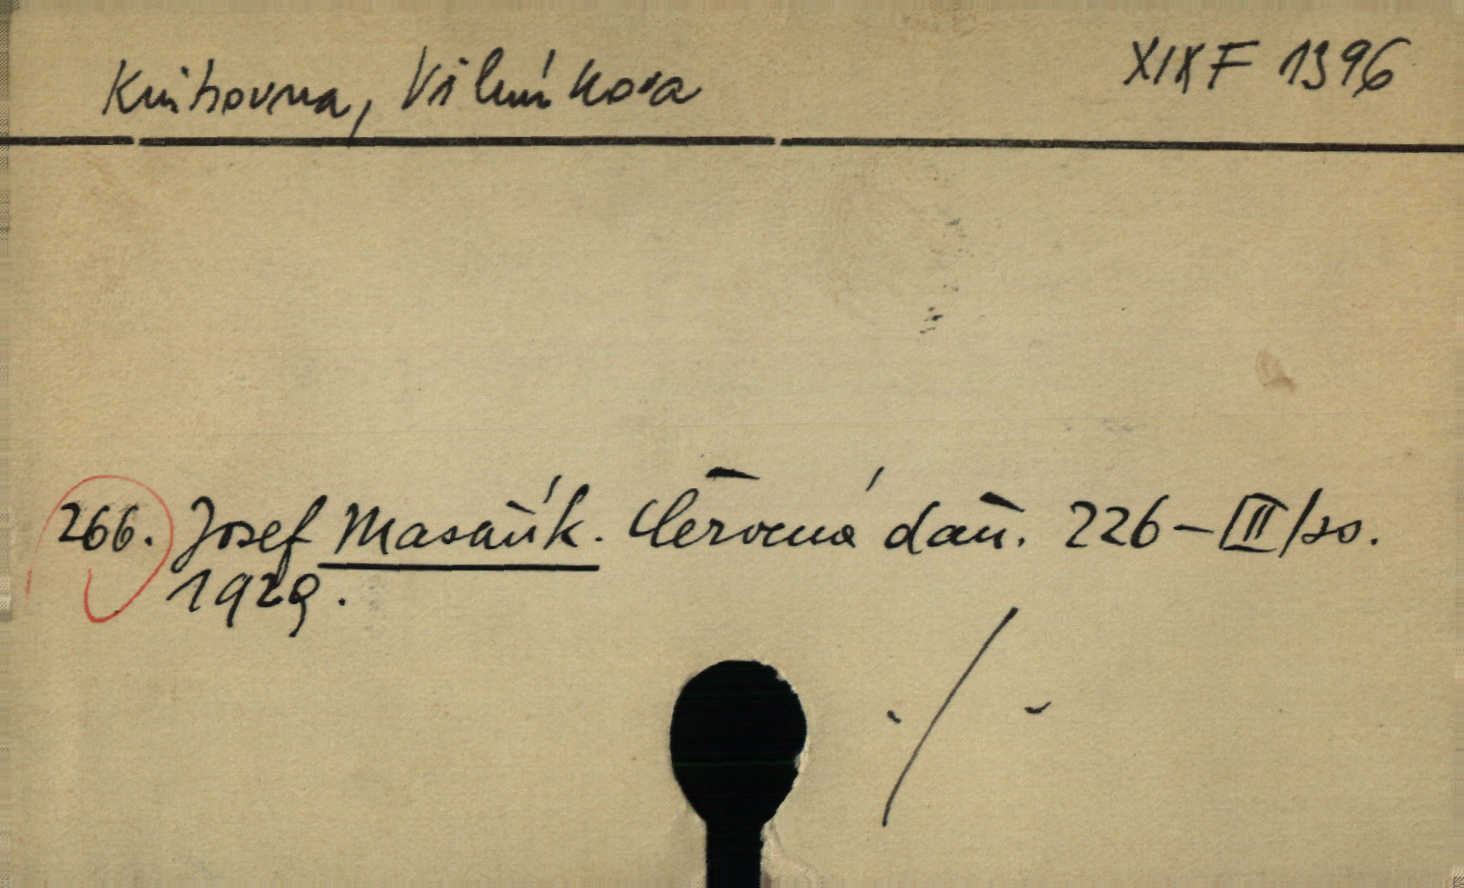 Knihovna, Vilímkova XIX F 1396
266. Josef Masařík. Červená daň. 226-III/so.
1929.
./.